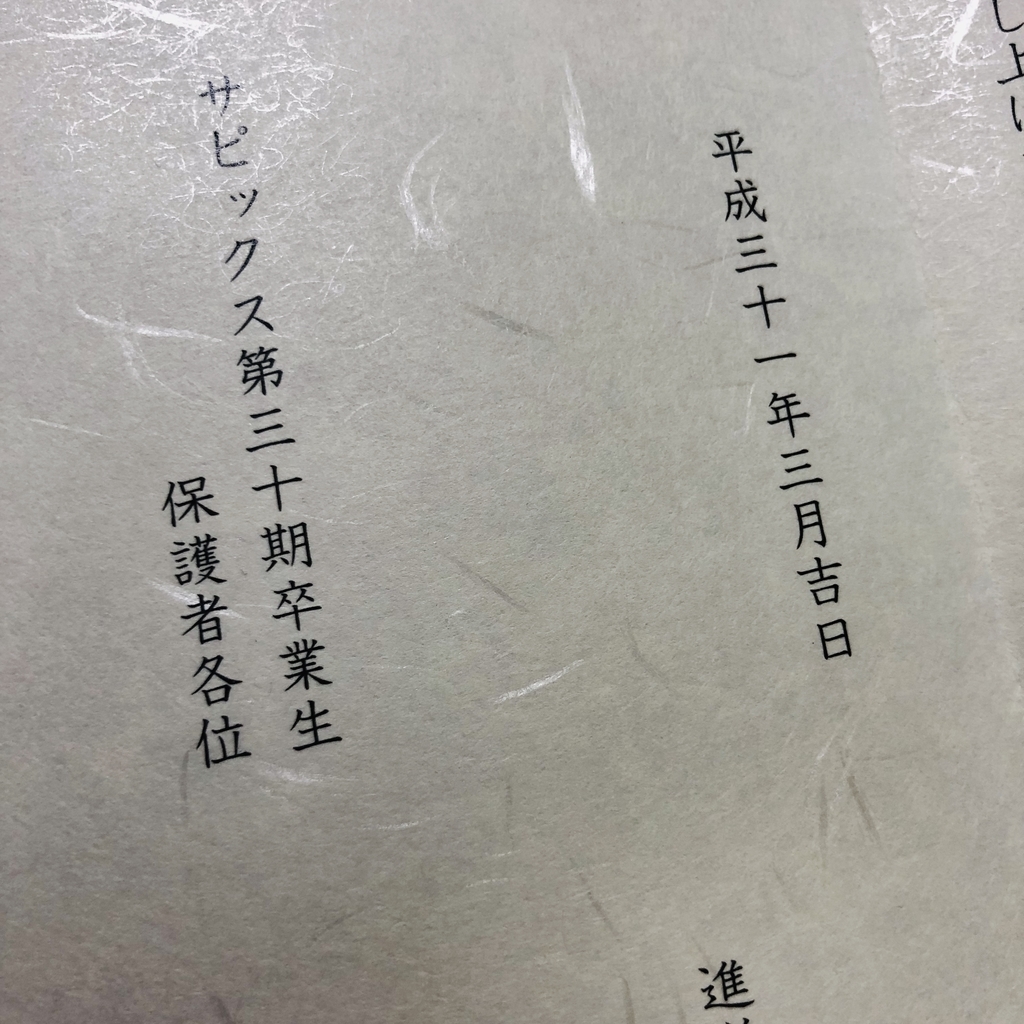 し上げ
平成三十一年三月吉日
進
サピックス第三十期卒業生
保護者各位